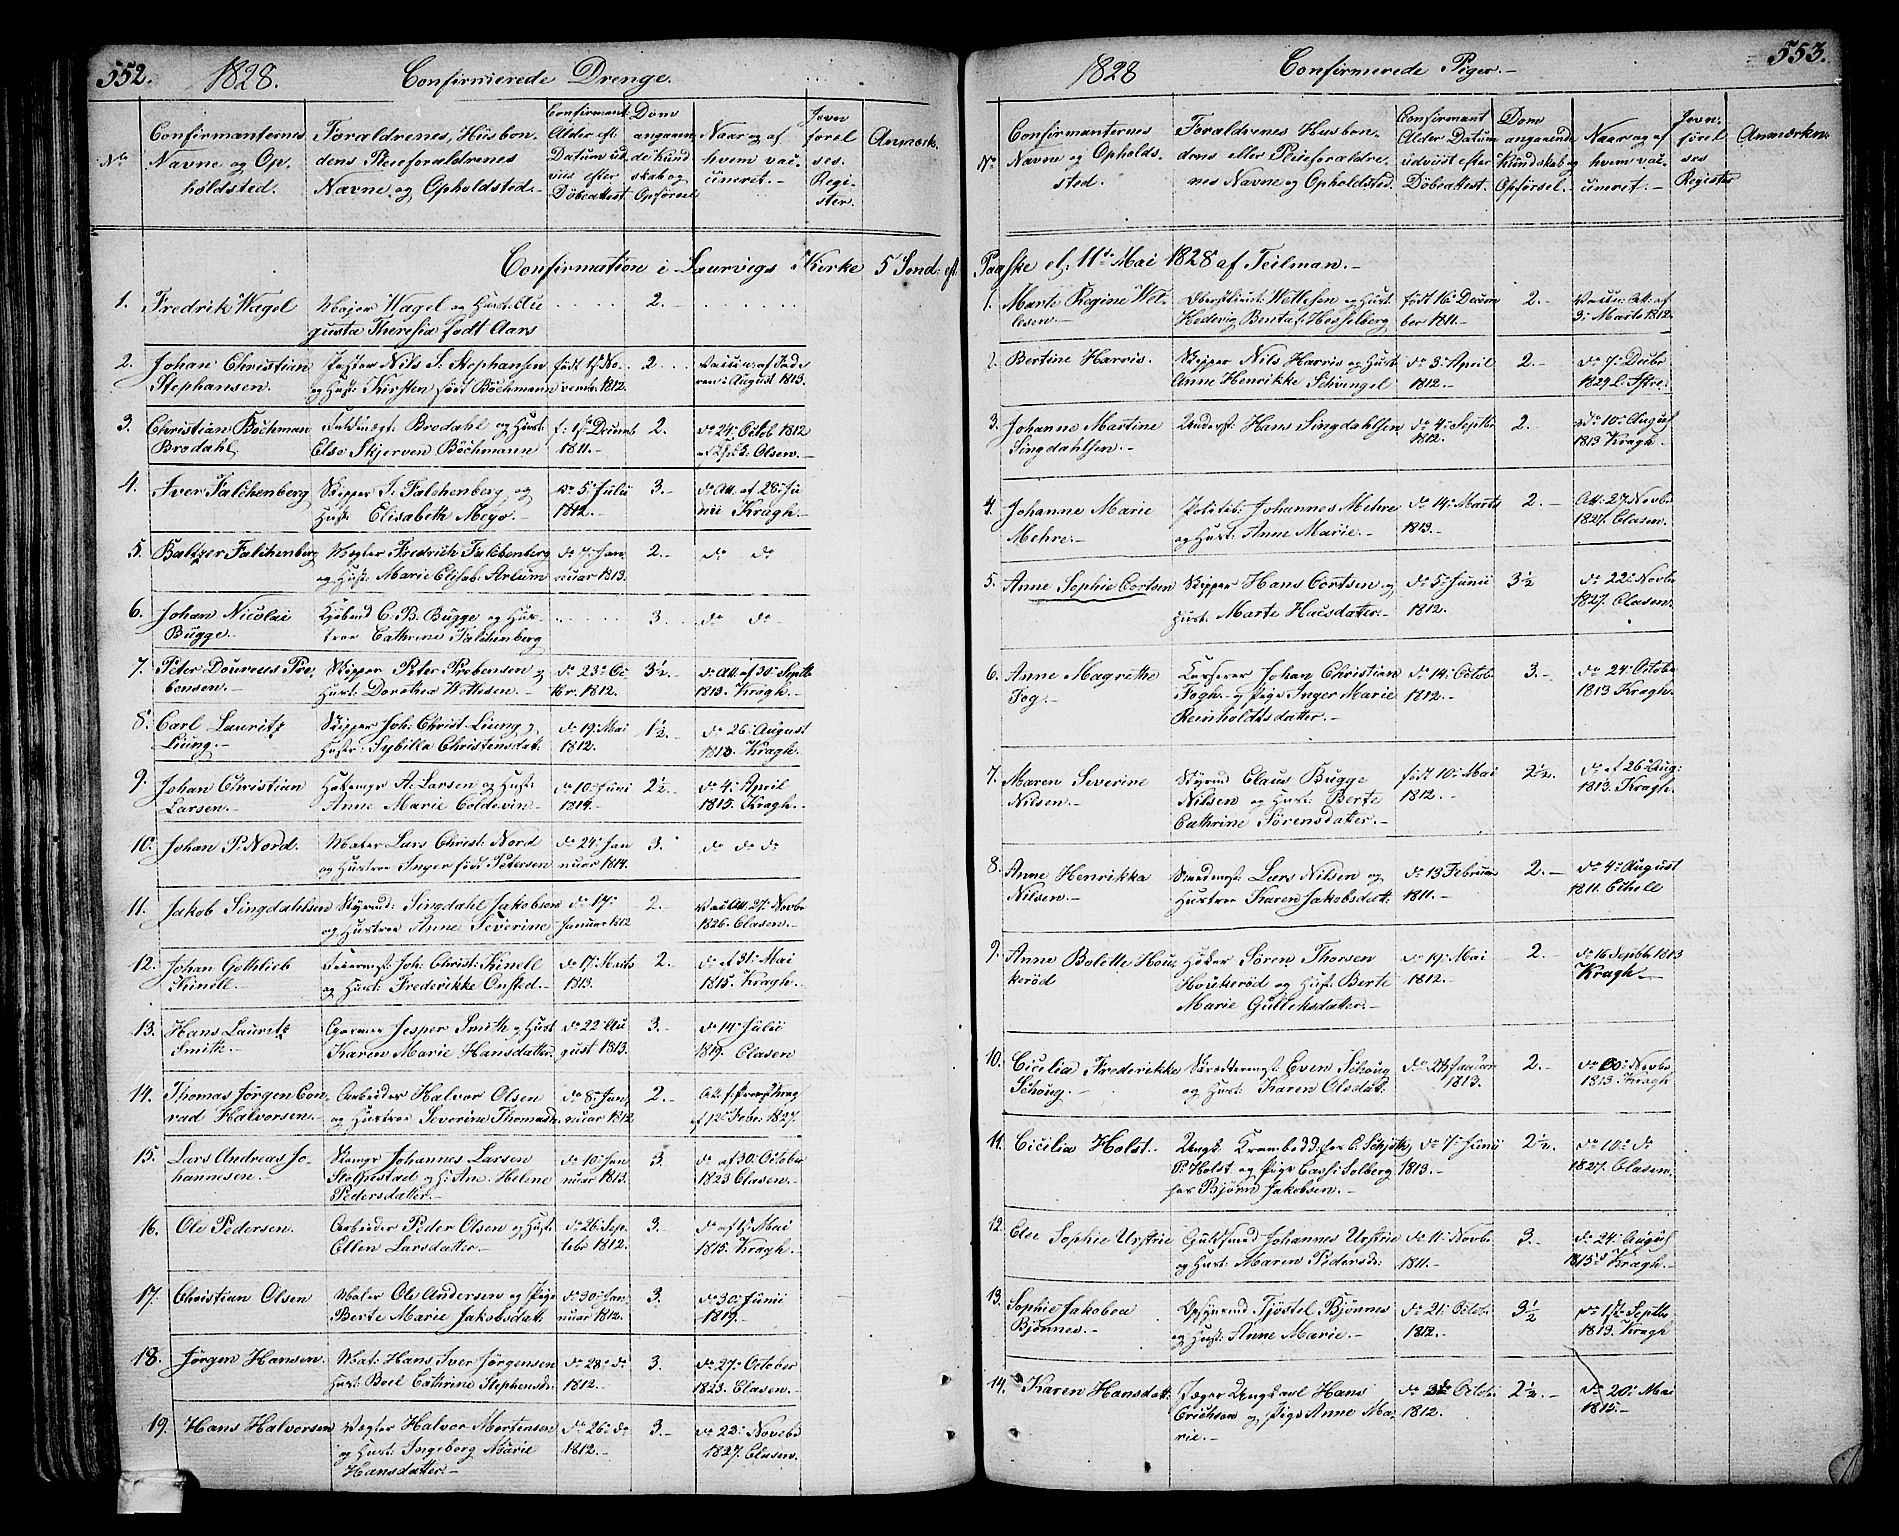 552.
1828.
Confirmerede Drenge.
No
Confirmanternes
Navne og Op-
holdsted.
Forældrenes, Husbon-
dens Pleieforældrenes
Navne og Opholdsted.
Confirmant
Alder eft
Datum ud
viis efter
Döbeattest
Dom
angaaen
de Kund
skab og
Opförsel
Naar og af
hvem vac-
cineret.
Joven
forel
ses-
Regi-
ster.
Anmærk.
Confirmation i Laurvigs Kirke 5 Sönd: eft
1. Fredrik Wagel
Major Wagel og Hust: Au
gusta Theresia født Aars
2.
2. Johan Christian
Stephansen.
Nils S. Stephansen
og Hust: Kirsten født Böchmann
født 1ste No-
vembr 1812.
2.
Vaccin: af
ren: August 1813.
3. Christian Böchman
Brodahl
Brodahl og Hust:
Else Skjerven Böchmann
f: 1ste Decemb
1811.
2.
do 24: Octob 1812
Olsen.
4. Iver Falchenberg
Skipper J: Falchenberg og
Hust: Elisabeth Meyo.
do 5: Julii
1812.
3.
do Att. af 28: Ju
nii Kragh.
5. Baltzer Falchenberg
Fredrich Falchenberg
og Hust: Marie Elisab: Arlum
do 7: Jan
nuar 1813.
2.
do do
6. Johan Nicolai
Bugge.
Kjöbmd C. B. Bugge og Hus-
troe Cathrine Falchenberg
3.
do do
7. Peter Doureus Pre-
bensen.
Skipper Peter Prebensen og
Hust: Dorothea Wethsen.
do 23: Oc
tbr. 1812.
3½.
do Att. af 30: Septb
1813. Kragh.
8. Carl Lauritz
Liung.
Skipper Joh: Christ: Liung og
Hustr: Sybilla Christensdat:
do 19: Mai
1812.
1½.
do 26: August
1813. Kragh.
9. Johan Christian
Larsen.
A: Larsen og Hust:
Anne Marie Coldevin
do 10: Juni
1814.
2½.
do 4: April
1815. Kragh.
10. Johan P: Nord.
Maler Lars Christ: Nord
og Hustroe Inger født Petersen
do 24: Jan
nuar 1814.
3.
do do do
11. Jakob Singdahlsen
Styrmd: Singdahl Jakobsen
og Hustroe Anne Severine
do 17:
Januar 1812
2.
Vac: Att. 27: Novbr
1826. Clasen.
12. Johan Gottlieb
Kinell.
Joh: Christ: Kinell
og Hust: Frederikke Onsted.
do 17: Marts
1813.
2.
do af 31: Mai
1815. Kragh.
13. Hans Lauritz
Smith.
Jesper Smith og Hust
Karen Marie Hansdatter.
do 22: Au
gust 1813.
3.
do 14: Julii
1819. Clasen
14. Thomas Jörgen Con
rad Halvorsen.
Arbeider Halvor Olsen
og Hustroe Severine Thomasd:
do 8: Jan
nuar 1812
2.
Att. f:
af 12: Febr. 1827.
15. Lars Andreas Jo-
hannesen.
Johannes Larsen
og H: Ane Helene
Pedersdatter.
do 10: Jan
nuar 1813.
3.
do af 30: October
1823 Clasen.
16. Ole Pedersen.
Arbeider Peder Olsen og Hust:
Ellen Larsdatter.
do 26: Sep-
tebr 1812.
3.
do af 19: Mai
1815. Kragh.
17. Christian Olsen
Maler Ole Andersen og Pige
Berte Marie Jakobsdat:
do 30: Jan
nuar 1812.
3.
do 30: Junii
1819.
18. Jörgen Hansen.
Mat: Hans Iver Jörgensen
Hust: Boel Cathrine Stephensd:
do 28: do
1812.
3.
do 27: October
1823. Clasen.
19. Hans Halvorsen
Vegter Halvor Mortensen
og Hust: Ingeborg Marie
Hansdatter.
do 26: do
1812.
3.
do 23: Novebr
1827. Clasen.
553.
1828
Confirmerede Piger.
No
Confirmanternes
Navne og Opholds-
sted.
Forældrenes Husbon-
dens eller Pleieforældre-
nes Navne og Opholdsted.
Confirmant
Alder Datum
udviist efter
Döbeattest.
Dom
angaaende
Kundskab og
Opförsel.
Naar og af
hvem vac-
cineret.
Joven-
förel
ses
Register
Anmærkn.
Paaske el: 11te Mai 1828 af Teilman.
1. Marte Regine Wet-
lesen.
Oberstlieut: Wettesen og Hust:
Hedevig Benta f: Hesselberg
født 16: Decem
ber 1811.
2.
Vaccin: Att: af
3: Marts 1812.
2. Bertine Harris.
Skipper Nils Harris og Hust:
Anne Henrikke Schvingel
do 3: April
1812.
2.
do 7: Decbr
3. Johanne Martine
Singdahlsen.
Hans Singdahlsen
do 4: Septbr
1812.
2.
do 10: August
1813 Kragh.
4. Johanne Marie
Mehre.
Politeb: Johannes Mehre
og Hust: Anne Marie.
do 14: Marts
1813.
2.
Att: 27. Novbr
1827. Clasen.
5. Anne Sophie Cortsen
Skipper Hans Cortsen og
Hust: Marte Hansdatter.
do 5: Junii
1812.
3½
do 22: Novbr
1827. Clasen.
6. Anne Magrethe
Fog.
Johan Christian
Fogh. og Pige Inger Marie
Reinholdtsdatter.
do 14: Octob
1812.
3.
do 24: Octobr
1813 Kragh.
7. Maren Severine
Nilsen.
Styrmd Claus Bugge
Nilsen og Hust: Berte
Cathrine Sörensdatter.
født 10: Mai
1812.
2½.
do af 26: Aug:
1813. Kragh.
8. Anne Henrikka
Nilsen.
Lars Nilsen og
Hustroe Karen Jakobsdat:
do 13 Februar
1811.
2.
do 4: August
1811.
9. Anne Bolette Hou-
kerød
Höker Sören Thorsen
Houkeröd og Hust: Berte
Marie Gulleksdatter.
do 19: Mai
1812.
2.
do 16 Septbr 1813
Kragh.
10. Cicilia Frederikke
Schoug.
Even Schoug
og Hust: Karen Olsdat:
Januar
1813.
2.
Novbr
1813 Kragh
11. Cicilia Holst.
P: Holst og Pige
hos Björn Jakobsen.
do 7: Junii
1813.
2½.
do 10: do
1827. Clasen.
12. Else Sophie Urstrie
Guldsmed Johannes Urstrie
og Hust: Maren Pedersd:
do 11: Novbr
1811.
3.
do 24: August
1815 Kragh.
13. Sophie Jakobea
Bjönnes.
Tjostel Bjönnes
og Hust: Anne Marie.
do 21: Octbr
1812.
3½
do 15: Septbr
1813. Kragh
14. Karen Hansdatt:
Jæger Ungkarl Hans
Erichsen og Pige Anne Ma-
rie.
Octbr
1812.
2½.
do 20: Mai
1815.